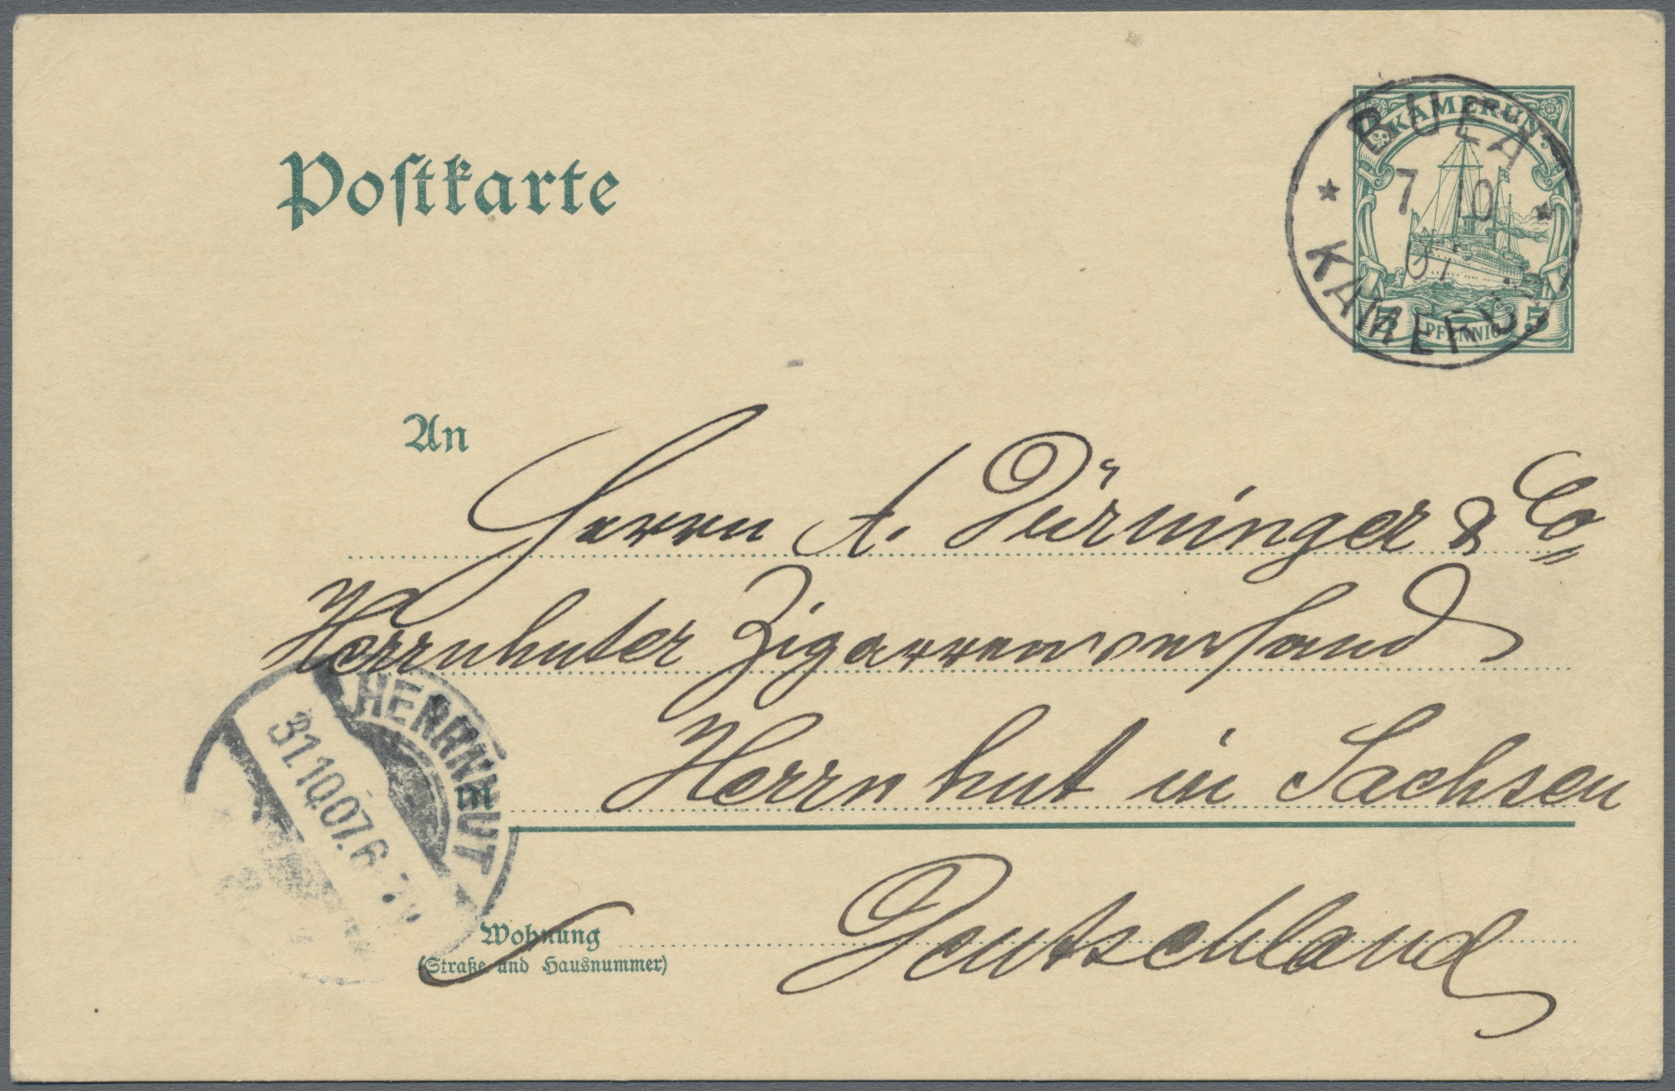 Postkarte
KAMERUN
5 PFENNIG 5
BUEA
7 10
07
KAMERUN
An
Herrn A. Dürninger & Co,
Herrnhuter Zigarrenversand
Herrnhut in Sachsen
in
HERRNHUT
31.10.07. 6-7N.
Deutschland
Wohnung
(Straße und Hausnummer)